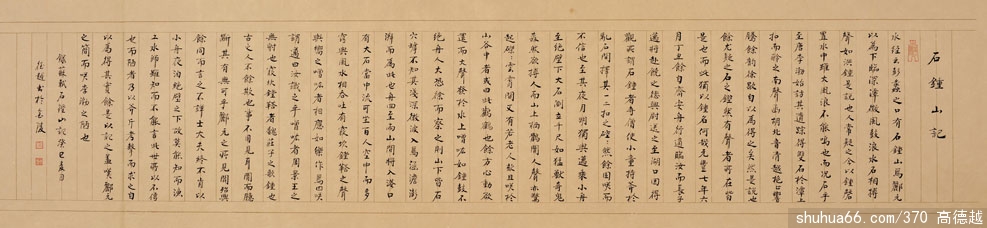 石鐘山記
水經云彭蠡之口有石鐘山焉酈元
以為下臨深潭微風鼓浪水石相搏
聲如洪鐘是說也人常疑之今以鐘磬
置水中雖大風浪不能鳴也而況石乎
至唐李勃始訪其遺踪得雙石於潭上
扣而聆之南聲函胡北音清越枹止響
騰餘韻徐歇自以為得之矣然是說也
餘尤疑之石之鏗然有聲者所在皆
是也而此獨以鐘名何哉元豐七年六
月丁丑餘自齊安舟行適臨汝而長子
邁將赴饒之德興尉送之至湖口因得
觀所謂石鐘者寺僧使小童持斧於
亂石間擇其一二扣之硿々然餘固笑而
不信也至其夜月明獨與邁乘小舟
至絕壁下大石側立千尺如猛獸奇鬼
森然欲搏人而山上栖鶻聞人聲亦驚
起磔々雲霄間又有若老人欬且笑於
山谷中者或曰此鸛鶴也餘方心動欲
還而大聲發於水上噌吰如鐘鼓不
絕舟人大恐徐而察之則山下皆石
穴罅不知其淺深微波入焉涵澹澎
湃而為此也舟迴至兩山間將入港口
有大石當中流可坐百人空中而多
竅與風水相吞吐有窾坎鏜鞳之聲
與嚮之噌吰者相應如樂作焉因笑
謂邁曰汝識之乎噌吰者周景王之
無射也窾坎鏜鞳者魏莊子之歌鐘也
古之人不餘欺也事不目見耳聞而臆
斷其有無可乎酈元之所見聞殆與
餘同而言之不詳士大夫終不肯以
小舟夜泊絕壁之下故莫能知而漁
工水師雖知而不能言此世所以不傳
也而陋者乃以斧斤考擊而求之自
以為得其實餘是以記之蓋嘆酈元
之簡而笑李勃之陋也
錄蘇軾石鐘山記癸巳夏日
德越書於
shuhua66.com/370 高德越